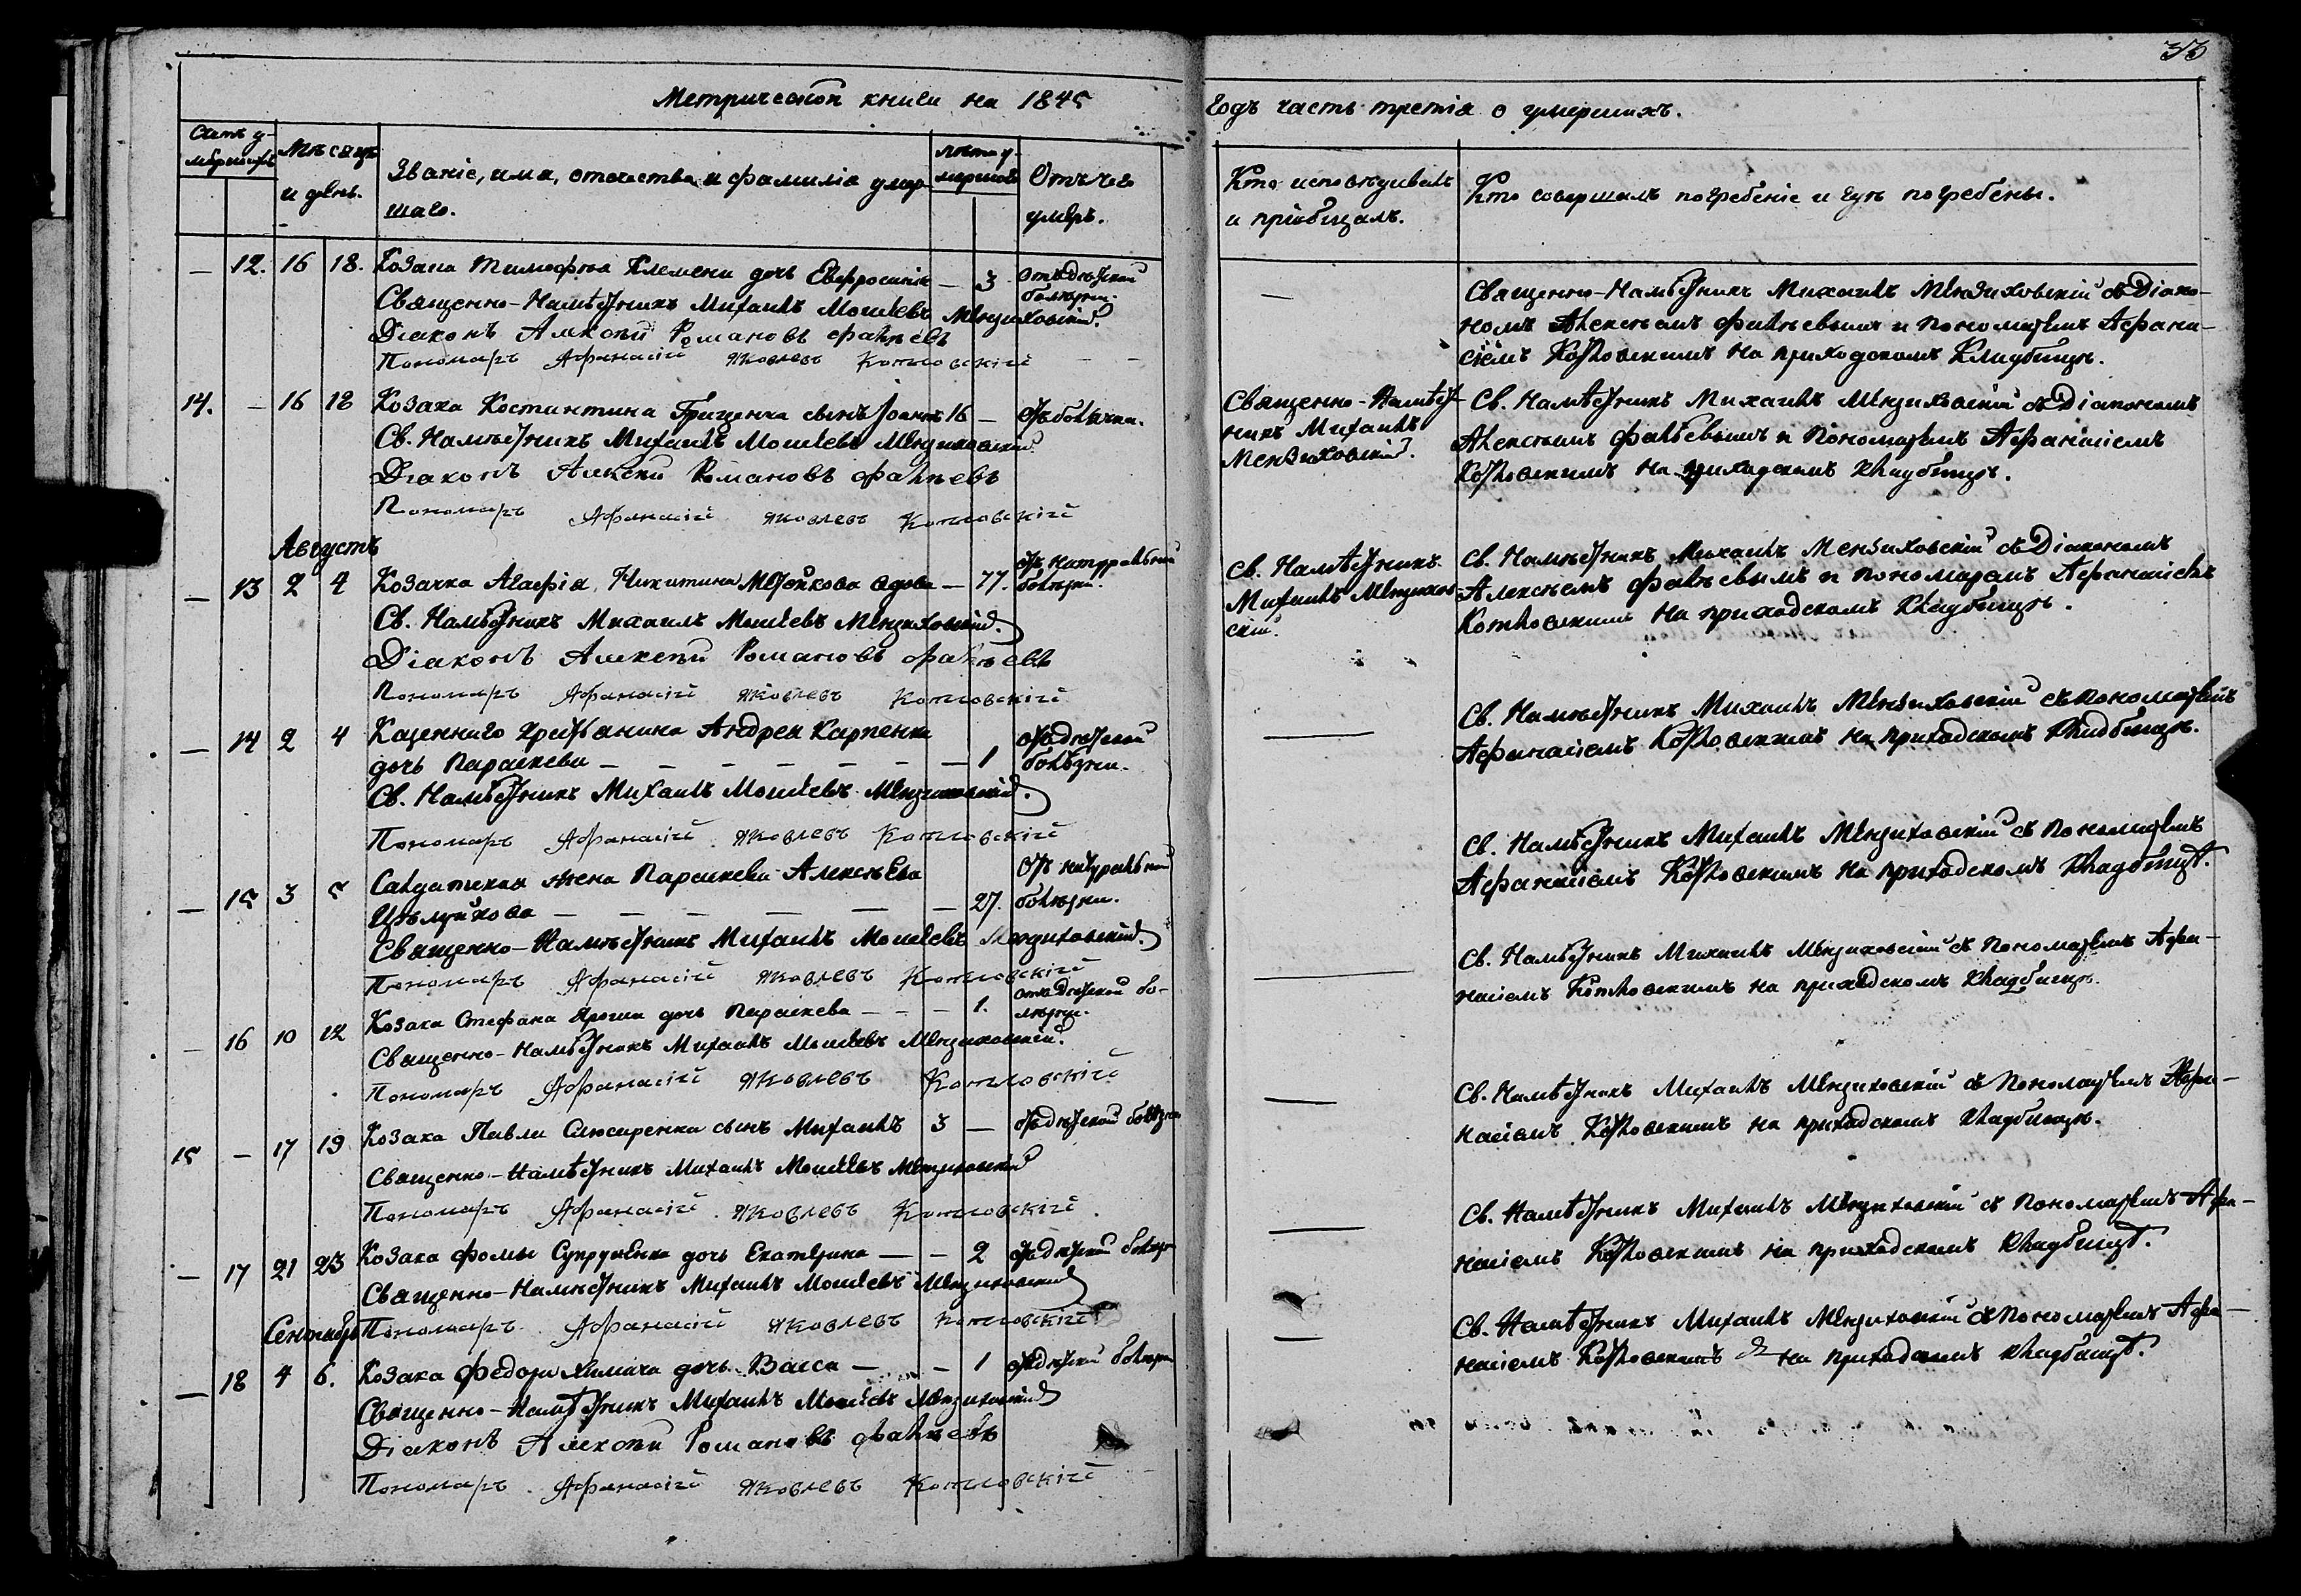 33
Метрической книги на 1845
годъ часть третія о умершихъ.
Счетъ у-
мершихъ
Мѣсяцъ
и день.
Званіе, имя, отечество и фамилія умер-
шаго.
лѣта у-
мершаго
Отъ чего
умеръ.
Кто исповѣдывалъ
и пріобщалъ.
Кто совершалъ погребеніе и гдѣ погребены.
— 12. 16 18. Козака Тимофѣя Клемени дочь Евфросинія — 3 отъ дѣтской
болѣзни.
Священно-Намѣстникъ Михаилъ Моисеевъ Мензиховскій.
Діаконъ Алексѣй Романовъ Фалѣевъ
Пономарь Афанасій Яковлевъ Котловскій
— Священно-Намѣстникъ Михаилъ Мензиховскій съ Діако-
номъ Алексѣемъ Фалѣевымъ и Пономаремъ Афана-
сіемъ Котловскимъ на приходскомъ кладбищѣ.
14. — 16 18 Козака Костинтина Грищенка сынъ Іоаннъ 16 — отъ болячки.
Св. Намѣстникъ Михаилъ Моисеевъ Мензиховскій.
Діаконъ Алексѣй Романовъ Фалѣевъ
Пономарь Афанасій Яковлевъ Котловскій
Священно-Намѣст-
никъ Михаилъ
Мензиховскій.
Св. Намѣстникъ Михаилъ Мензиховскій съ Діакономъ
Алексѣемъ Фалѣевымъ и Пономаремъ Афанасіемъ
Котловскимъ на приходскомъ кладбищѣ.
Августъ
— 13 2 4 Козачка Агафія Никитина вдова — 77. отъ натуральной
болѣзни.
Св. Намѣстникъ Михаилъ Моисеевъ Мензиховскій.
Діаконъ Алексѣй Романовъ Фалѣевъ
Пономарь Афанасій Яковлевъ Котловскій
Св. Намѣстникъ
Михаилъ Мензихов-
скій.
Св. Намѣстникъ Михаилъ Мензиховскій съ Діакономъ
Алексѣемъ Фалѣевымъ и Пономаремъ Афанасіемъ
Котловскимъ на приходскомъ кладбищѣ.
— 14 2 4 Казенного крестьянина Андрея Карпенка
дочь Параскева — — — — — — — 1 отъ дѣтской
болѣзни.
Св. Намѣстникъ Михаилъ Моисеевъ Мензиховскій.
Пономарь Афанасій Яковлевъ Котловскій
— Св. Намѣстникъ Михаилъ Мензиховскій съ Пономаремъ
Афанасіемъ Котловскимъ на приходскомъ кладбищѣ.
— 15 3 5 Салдатская жена Параскева Алексѣева
Цѣлуйкова — — — — — — 27. отъ натуральной
болѣзни.
Священно-Намѣстникъ Михаилъ Моисеевъ Мензиховскій.
Пономарь Афанасій Яковлевъ Котловскій
Св. Намѣстникъ Михаилъ Мензиховскій съ Пономаремъ
Афанасіемъ Котловскимъ на приходскомъ кладбищѣ.
— 16 10 12 Козака Стефана Яроша дочь Параскева — — — 1. отъ дѣтской бо-
лѣзни.
Священно-Намѣстникъ Михаилъ Моисеевъ Мензиховскій.
Пономарь Афанасій Яковлевъ Котловскій
— Св. Намѣстникъ Михаилъ Мензиховскій съ Пономаремъ Афа-
насіемъ Котловскимъ на приходскомъ кладбищѣ.
15 — 17 19 Козака Павла Слюсаренка сынъ Михаилъ 3 — отъ дѣтской болѣзни
Священно-Намѣстникъ Михаилъ Моисеевъ Мензиховскій
Пономарь Афанасій Яковлевъ Котловскій
— Св. Намѣстникъ Михаилъ Мензиховскій съ Пономаремъ Афа-
насіемъ Котловскимъ на приходскомъ кладбищѣ.
— 17 21 23 Козака Фомы Супруненка дочь Екатерина — — 2 отъ дѣтской болѣзни
Священно-Намѣстникъ Михаилъ Моисеевъ Мензиховскій
Пономарь Афанасій Яковлевъ Котловскій
— Св. Намѣстникъ Михаилъ Мензиховскій съ Пономаремъ Афа-
насіемъ Котловскимъ на приходскомъ кладбищѣ.
Сентябрь
— 18 4 6. Козака Федора Химича дочь Васса — — 1 отъ дѣтской болѣзни
Священно-Намѣстникъ Михаилъ Моисеевъ Мензиховскій
Діаконъ Алексѣй Романовъ Фалѣевъ
Пономарь Афанасій Яковлевъ Котловскій
— Св. Намѣстникъ Михаилъ Мензиховскій съ Пономаремъ Афа-
насіемъ Котловскимъ на приходскомъ кладбищѣ.